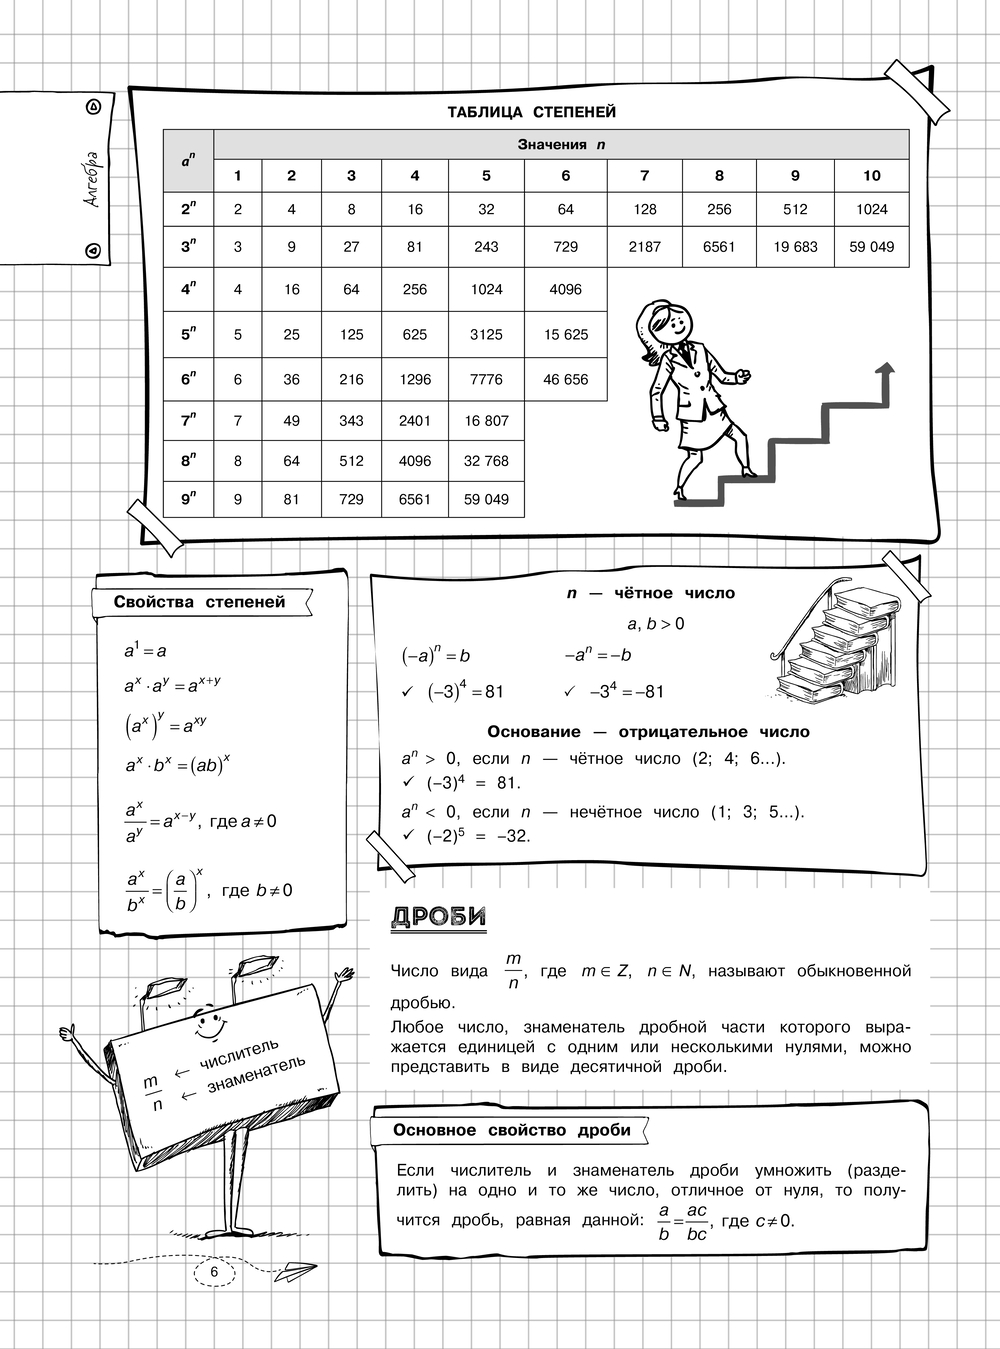 Алгебра
ТАБЛИЦА СТЕПЕНЕЙ
aⁿ Значения n
1 2 3 4 5 6 7 8 9 10
2ⁿ 2 4 8 16 32 64 128 256 512 1024
3ⁿ 3 9 27 81 243 729 2187 6561 19 683 59 049
4ⁿ 4 16 64 256 1024 4096
5ⁿ 5 25 125 625 3125 15 625
6ⁿ 6 36 216 1296 7776 46 656
7ⁿ 7 49 343 2401 16 807
8ⁿ 8 64 512 4096 32 768
9ⁿ 9 81 729 6561 59 049
Свойства степеней
a¹ = a
a^x · a^y = a^(x+y)
(a^x)^y = a^(xy)
a^x · b^x = (ab)^x
a^x/a^y = a^(x−y), где a ≠ 0
a^x/b^x = (a/b)^x, где b ≠ 0
n — чётное число
a, b > 0
(−a)ⁿ = b −aⁿ = −b
✓ (−3)⁴ = 81 ✓ −3⁴ = −81
Основание — отрицательное число
aⁿ > 0, если n — чётное число (2; 4; 6...).
✓ (−3)⁴ = 81.
aⁿ < 0, если n — нечётное число (1; 3; 5...).
✓ (−2)⁵ = −32.
ДРОБИ
Число вида m/n, где m ∈ Z, n ∈ N, называют обыкновенной
дробью.
Любое число, знаменатель дробной части которого выра-
жается единицей с одним или несколькими нулями, можно
представить в виде десятичной дроби.
m ← числитель
n ← знаменатель
Основное свойство дроби
Если числитель и знаменатель дроби умножить (разде-
лить) на одно и то же число, отличное от нуля, то полу-
чится дробь, равная данной: a/b = ac/bc, где c ≠ 0.
6